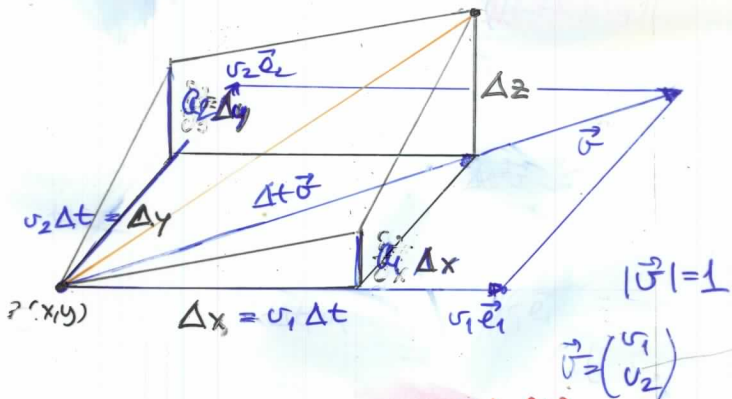 v₂e⃗₂
Δz
v⃗
Δt v⃗
v₂Δt = Δy
Δx
(x,y)
Δx = v₁Δt
v₁e⃗₁
|v⃗|=1
v⃗=(v₁
v₂)